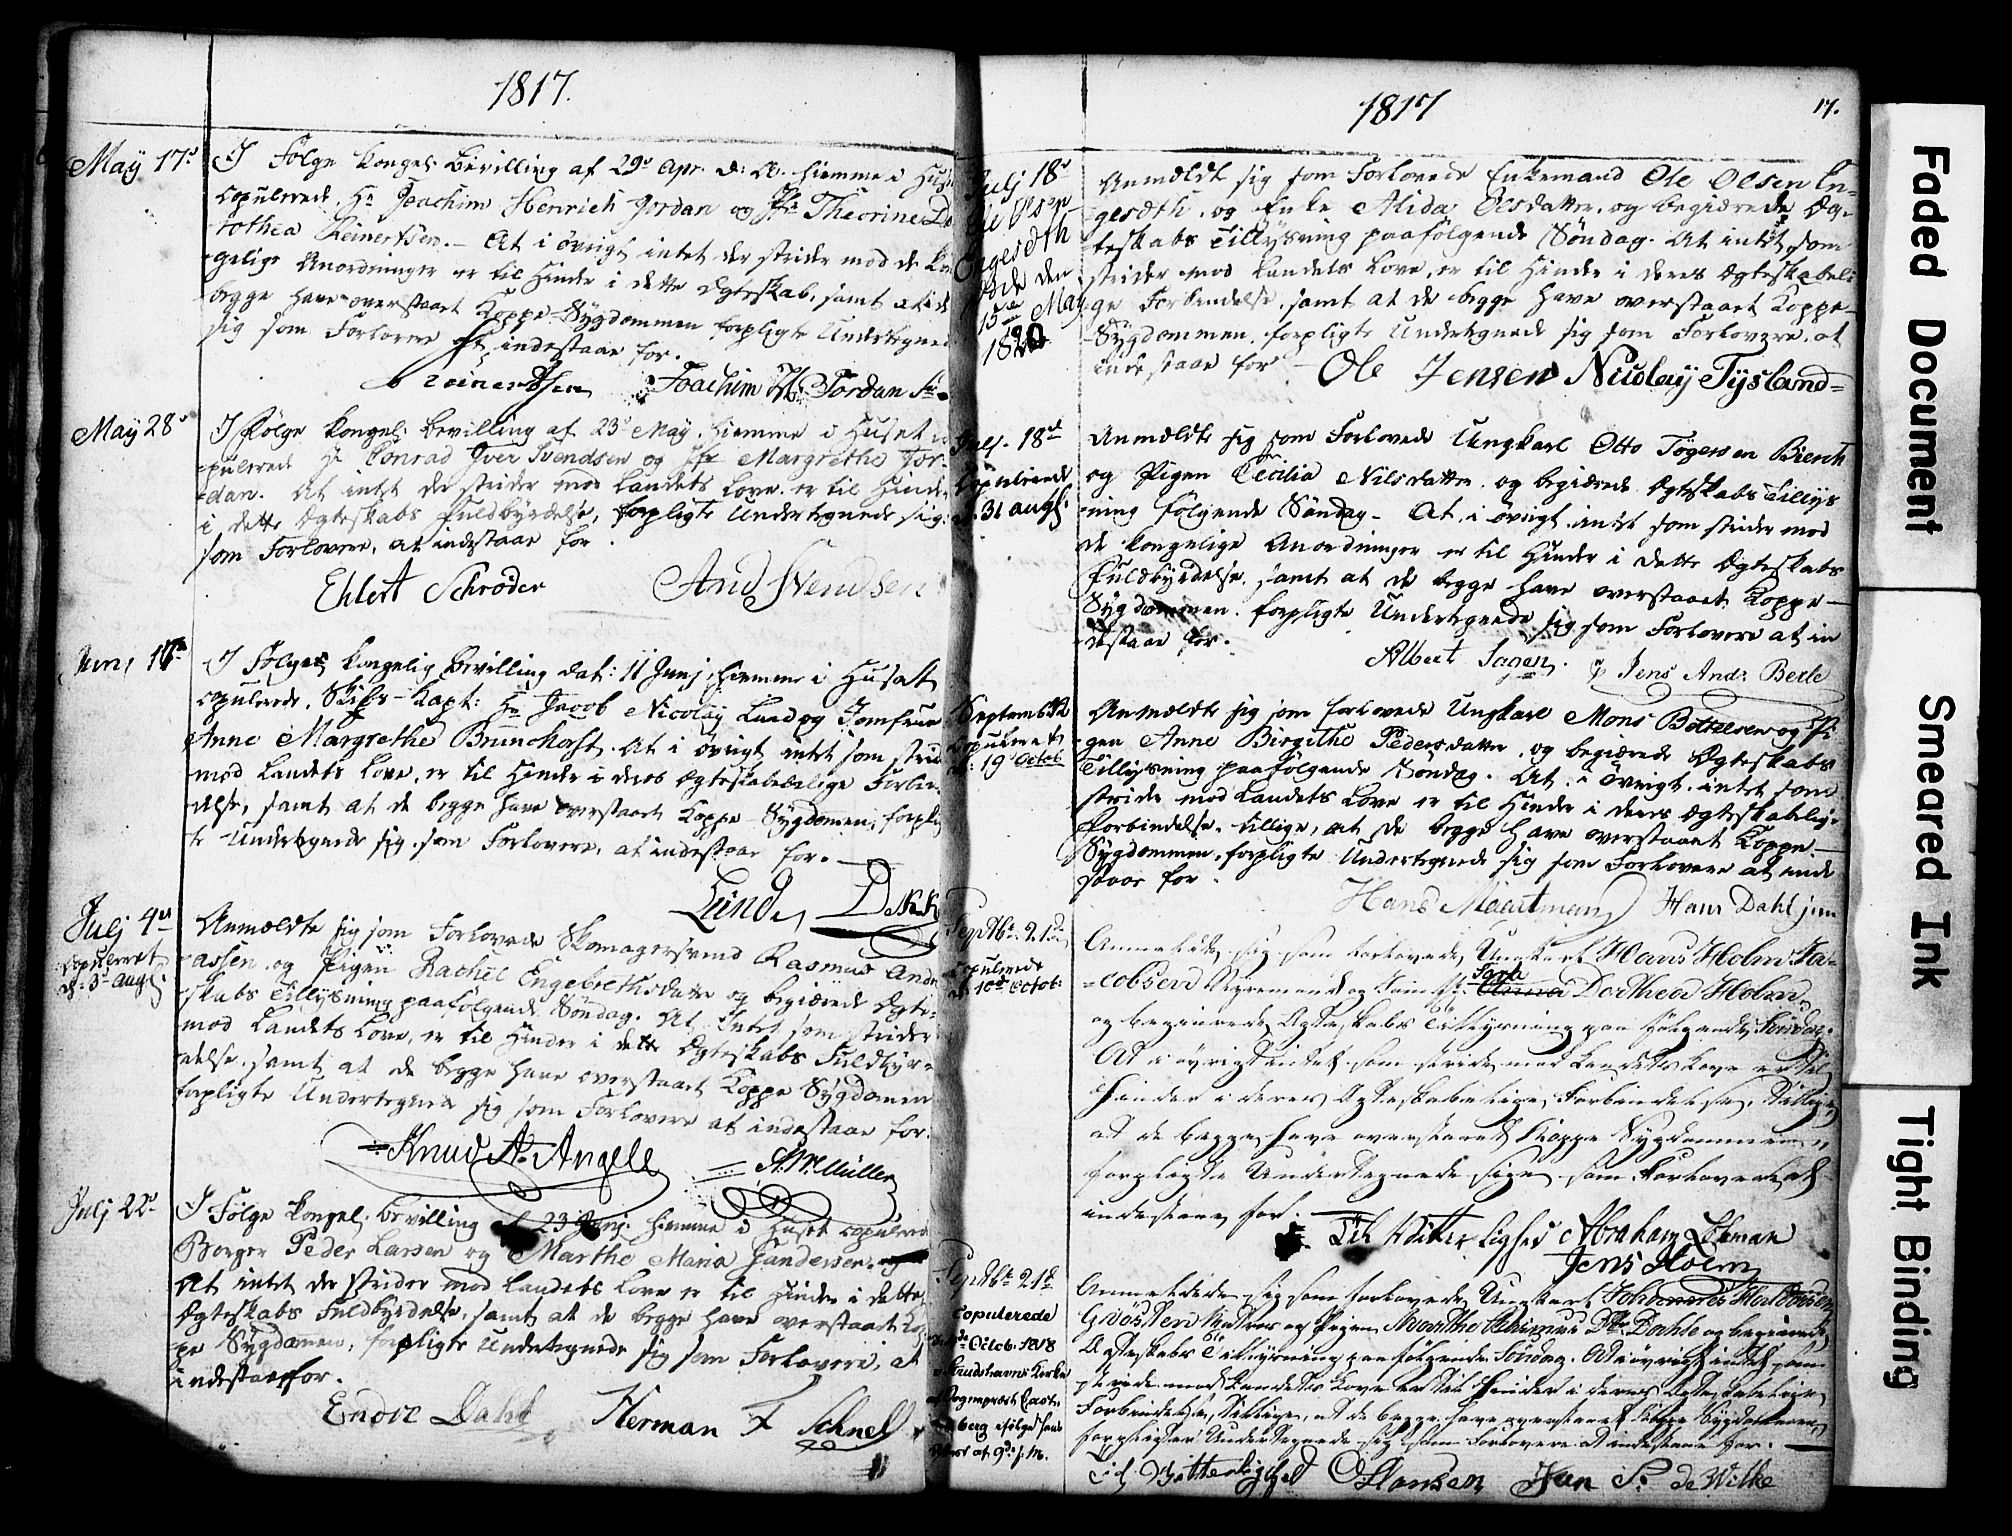 1817.
May 17d
I Følge Kongel. Bevilling af 29d Apr. d: A. hiemme i Huset
copulerede Hr Joachim Henrich Jordan og Jfr Theorine Do
rothea Reinertsen. – At i øvrigt intet der strider mod de kon
gelige Anordninger er til Hinder i dette Ægteskab, samt at de
begge have overstaaet Koppe-Sygdommen forpligte Undertegnede
sig som Forlovere at indestaae for.
Reinertsen Joachim H. Jordan Sr.
May 28d
I Følge Kongel. Bevilling af 23d May hiemme i Huset co
pulerede Hr Conrad Iver Svendsen og Jfr Margrethe Jor-
dan. At intet der strider mod Landets Love er til Hinder
i dette Ægteskabs Fuldbyrdelse, forpligte Undertegnede sig
som Forlovere, at indestaae for.
Ehlert Schrøder And Svendsen
Junj
I Følge Kongelig Bevilling dat: 11 Junj, hiemme i Huset
copulerede, Skibs-Capt: Hr Jacob Nicolay Lund og Jomfrue
Anne Margrethe Brunchorst. At i øvrigt intet som strider
mod Landets Love, er til Hinder i deres Ægteskabelige Forbin-
delse, samt at de begge have overstaaet Koppe-Sygdomen, forplig
te Undertegnede sig som Forlovere, at indestaae for.
Lund,
Julj 4de
copuleret
d. 3d Aug.
Anmældte sig som Forlovede Skomagersvend Rasmus Andre
assen og Pigen Rachel Engebrethsdatter og begiærede Ægte-
skabs Tillysning paafølgende Søndag. At Intet som strider
mod Landets Love, er til Hinder i dette Ægteskabs Fuldbyr-
delse, samt at de begge have overstaaet Koppe Sygdomen
forpligte Undertegnede sig som Forlovere at indestaae for.
Knud A. Angell A. W. Müller
Julj 22d
I Følge Kongel. Bevilling af 23 Junj hiemme i Huset copulered
Borger Peder Larsen og Marthe Maria Sandersen.
At intet der strider mod Landets Love er til Hinder i dette
Ægteskabs Fuldbyrdelse, samt at de begge have overstaaet Kop
pe Sygdomen, forpligte Undertegnede sig som Forlovere, at
indestaae for.
Endre Dahl Herman F Schnell
1817
17.
Julj 18d
Ole Olsen
Engesæth
døde den
15de May
1820
Anmældte sig som Forlovede Enkemand Ole Olsen En-
gesæth, og Enke Alida Olsdatter, og begiærede Æg-
teskabs Tillysning paafølgende Søndag. At intet som
strider mod Landets Love, er til Hinder i deres Ægteskabeli-
ge Forbindelse, samt at de begge have overstaaet Koppe-
Sygdommen, forpligte Undertegnede sig som Forlovere, at
indestaae for
Ole Jensen Nicolaÿ Tÿsland
Julj 18d
Copulerede
d. 31 Aug.
Anmældte sig som Forlovede Ungkarl Otto Tøgersen Bierch
og Pigen Cecilia Nilsdatter, og begiærede Ægteskabs Tillys
ning følgende Søndag. At i øvrigt intet som strider mod
de kongelige Anordninger er til Hinder i dette Ægteskabs
Fuldbyrdelse, samt at de begge have overstaaet Koppe-
Sygdommen, forpligte Undertegnede sig som Forlovere at in
destaae for.
Albert Sagen. Jens And: Berle
Septemb: 12
copuleret
d. 19 Octob
Anmældte sig som forlovede Ungkarl Mons Bottelsen og Pi
gen Anne Birgithe Pedersdatter, og begiærede Ægteskabs
Tillysning paafølgende Søndag. At i øvrigt intet som
strider mod Landets Love er til Hinder i deres Ægteskabelig
Forbindelse, tillige, at de begge have overstaaet Koppe-
Sygdommen, forpligte Undertegnede sig som Forlovere at inde
staae for.
Hans Maartman Hans Dahl jun
Septbr. 21d
Copulerede
d. 10d Octob:
Anmeldede sig som forlovede, Ungkarl Hans Holm Ja-
cobsen og Jomfr. Sara Dorthea Holm,
og begierede Ægteskabs Tillysning paa følgende Søndag.
At i øvrigt intet som strider mod Landets Love er til
Hinder i deres Ægteskabelige Forbindelse, tillige,
at de begge have overstaaet Koppe Sygdommen,
forpligte Undertegnede sig som Forlovere at
indestaae for.
Abraham Lehman
Jens Holm
Septbr. 21d
Copulerede
Octob. 1818
Kirke
Anmeldede sig som forlovede, Ungkarl
og Pigen Dahle og begierede
Ægteskabs Tillysning paa følgende Søndag. At i øvrigt intet som
strider mod Landets Love er til Hinder i deres Ægteskabelige
Forbindelse, tillige, at de begge have overstaaet Koppe Sygdommen,
forpligter Undertegnede sig som Forlovere at indestaae for.
Hansen Jan S: de Wilke
Faded Document
Smeared Ink
Tight Binding